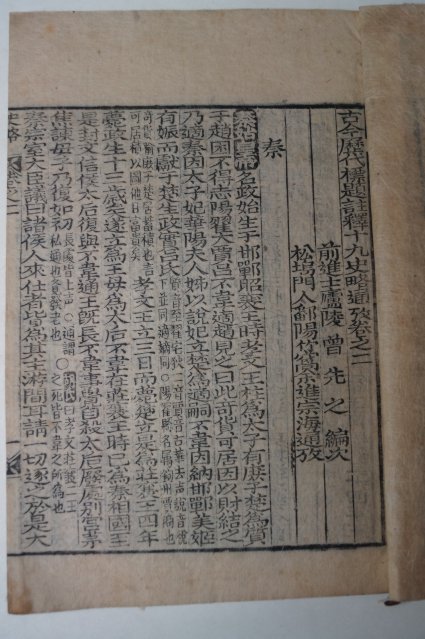 古今歷代標題註釋十九史略通攷卷之二
前進士廬陵曾先之編次
松塢門人鄱陽余進宗海通攷
秦
秦始皇帝名政始生于邯鄲昭襄王時孝文王柱為太子有庶子楚為質
于趙困不得志陽翟大賈呂不韋適趙見之曰此奇貨可居因以財結之
乃適秦因太子妃華陽夫人姊以說妃立楚為適嗣不韋因納邯鄲美姬
有娠而獻于楚生政實呂氏
孝文王立三日而薨楚立是為莊襄王四年
薨政生十三歲矣遂立為王母為太后不韋在莊襄王時已為秦相國至
是封文信侯太后復與不韋通王旣長不韋事覺自殺太后廢處別宮茅
焦諫母子乃復如初
秦宗室大臣議曰諸侯人來仕者皆為其主游間耳請一切逐之於是大